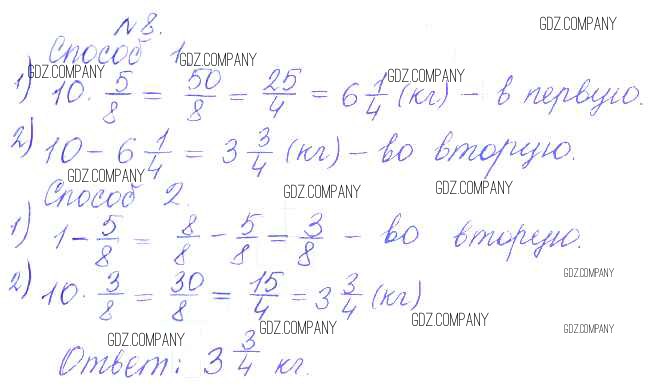 №8.
GDZ.COMPANY
Способ 1.
GDZ.COMPANY GDZ.COMPANY GDZ.COMPANY
1) 10 · 5/8 = 50/8 = 25/4 = 6 1/4 (кг) – в первую.
2) 10 – 6 1/4 = 3 3/4 (кг) – во вторую.
GDZ.COMPANY GDZ.COMPANY GDZ.COMPANY
Способ 2.
1) 1 – 5/8 = 8/8 – 5/8 = 3/8 – во вторую.
GDZ.COMPANY
2) 10 · 3/8 = 30/8 = 15/4 = 3 3/4 (кг)
GDZ.COMPANY GDZ.COMPANY GDZ.COMPANY GDZ.COMPANY
Ответ: 3 3/4 кг.